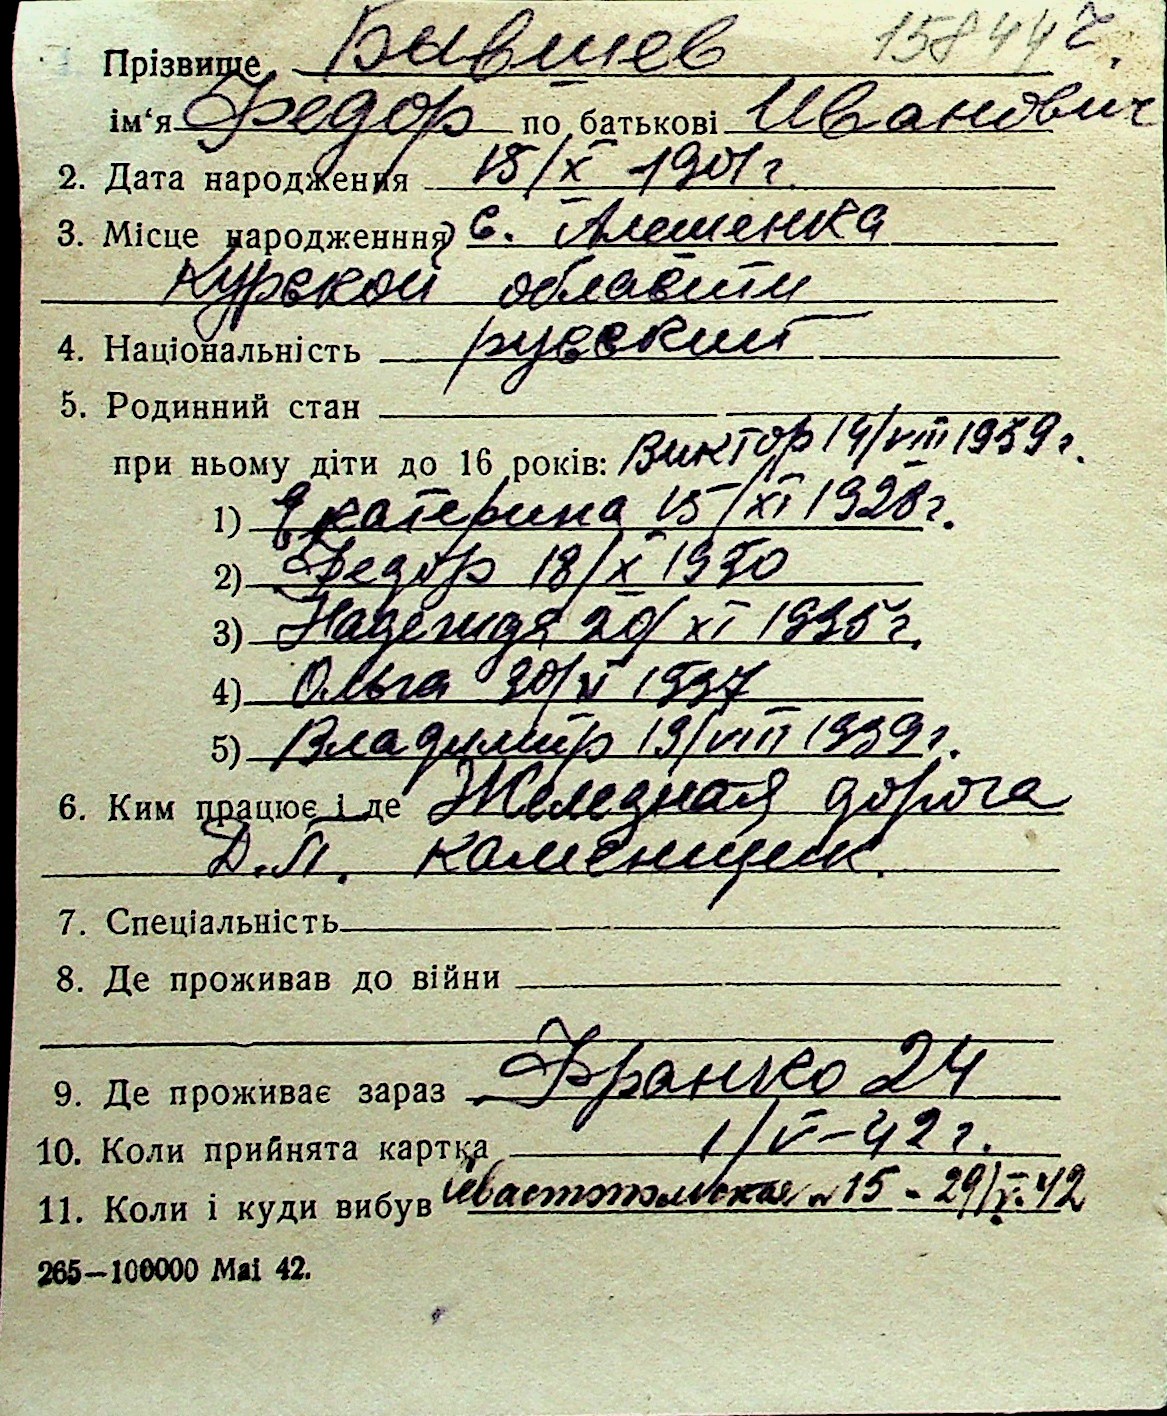 Прізвище Бывшев 15844 г.
ім‘я Федор по батькові Иванович
2. Дата народження 15/X 1901 г.
3. Місце народженння с. Алешенка
Курской области
4. Національність русский
5. Родинний стан
при ньому діти до 16 років: Виктор 14/VIII 1939 г.
1) Екатерина 15/XI 1928 г.
2) Федор 18/X 1930
3) Надежда 20/XI 1935 г.
4) Ольга 30/V 1937
5) Владимир 19/VIII 1939 г.
6. Ким працює і де Железная дорога
Д.П. каменщик.
7. Спеціальність
8. Де проживав до війни
9. Де проживає зараз Франко 24
10. Коли прийнята картка 1/V-42 г.
11. Коли і куди вибув Севастопольская № 15 - 29/V.42
265—100000 Mai 42.